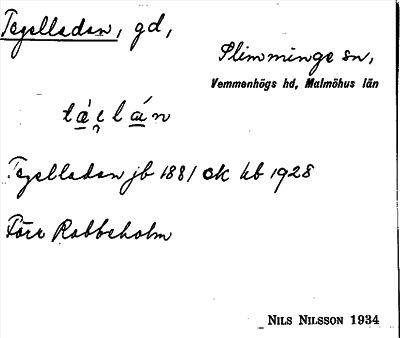 Tegelladan, gd,
Slimminge sn,
Vemmenhögs hd, Malmöhus län
tá̱e̯lá̱n
Tegelladan jb 1881 ok kb 1928
Förr Rabbeholm
NILS NILSSON 1934